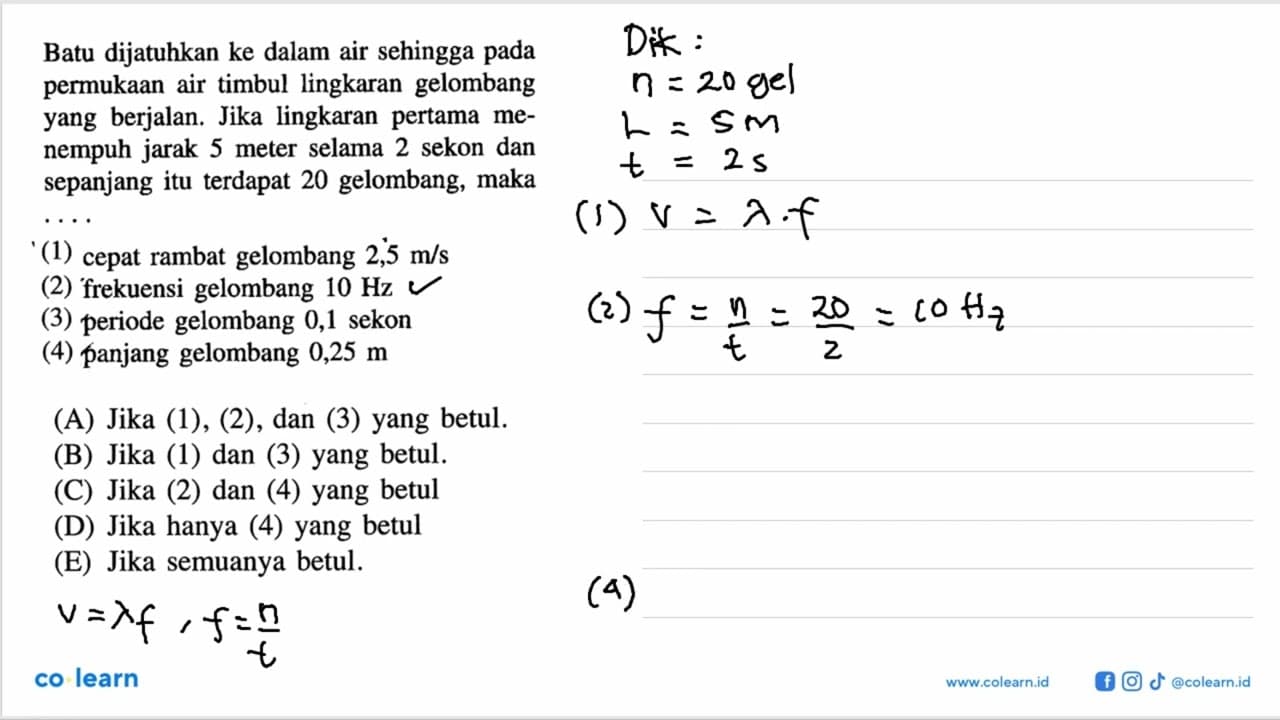 Batu dijatuhkan ke dalam air sehingga pada
permukaan air timbul lingkaran gelombang
yang berjalan. Jika lingkaran pertama me-
nempuh jarak 5 meter selama 2 sekon dan
sepanjang itu terdapat 20 gelombang, maka
. . . .
(1) cepat rambat gelombang 2,5 m/s
(2) frekuensi gelombang 10 Hz ✓
(3) periode gelombang 0,1 sekon
(4) panjang gelombang 0,25 m
(A) Jika (1), (2), dan (3) yang betul.
(B) Jika (1) dan (3) yang betul.
(C) Jika (2) dan (4) yang betul
(D) Jika hanya (4) yang betul
(E) Jika semuanya betul.
v = λf , f = n/t
Dik :
n = 20 gel
L = 5 m
t = 2 s
(1) v = λ . f
(2) f = n/t = 20/2 = 10 Hz
(4)
co learn
www.colearn.id
@colearn.id